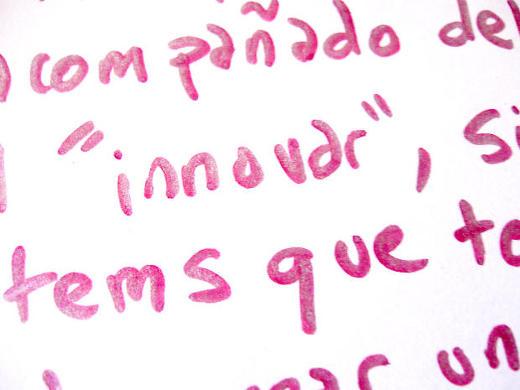 acompañado del
"innovar", si
tems que to
un